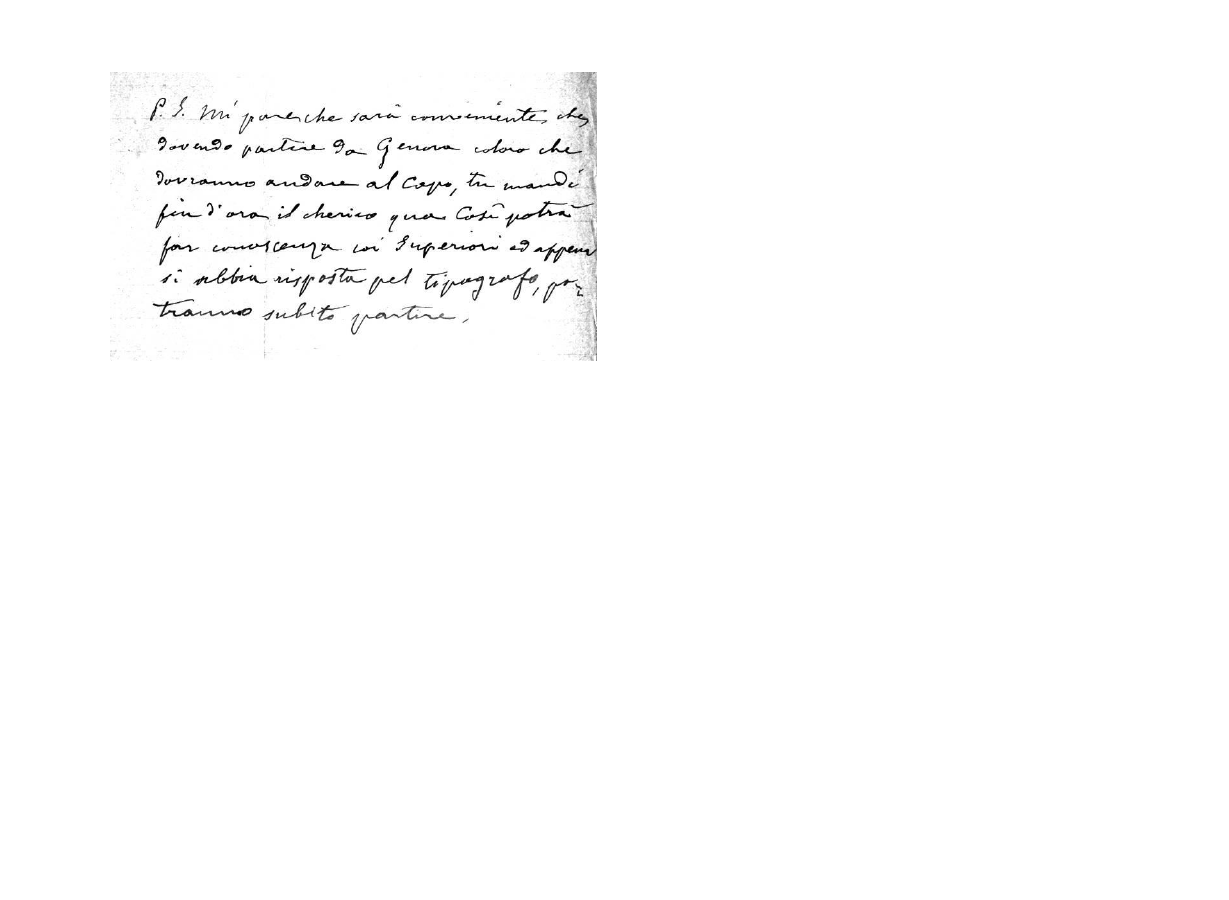 P. S. Mi pare che sarà conveniente, che
dovendo partire da Genova coloro che
dovranno andare al Capo, tu mandi
fin d'ora il cherico qua. Così potrà
far conoscenza coi Superiori ed appena
si abbia risposta pel tipografo, po-
tranno subito partire.